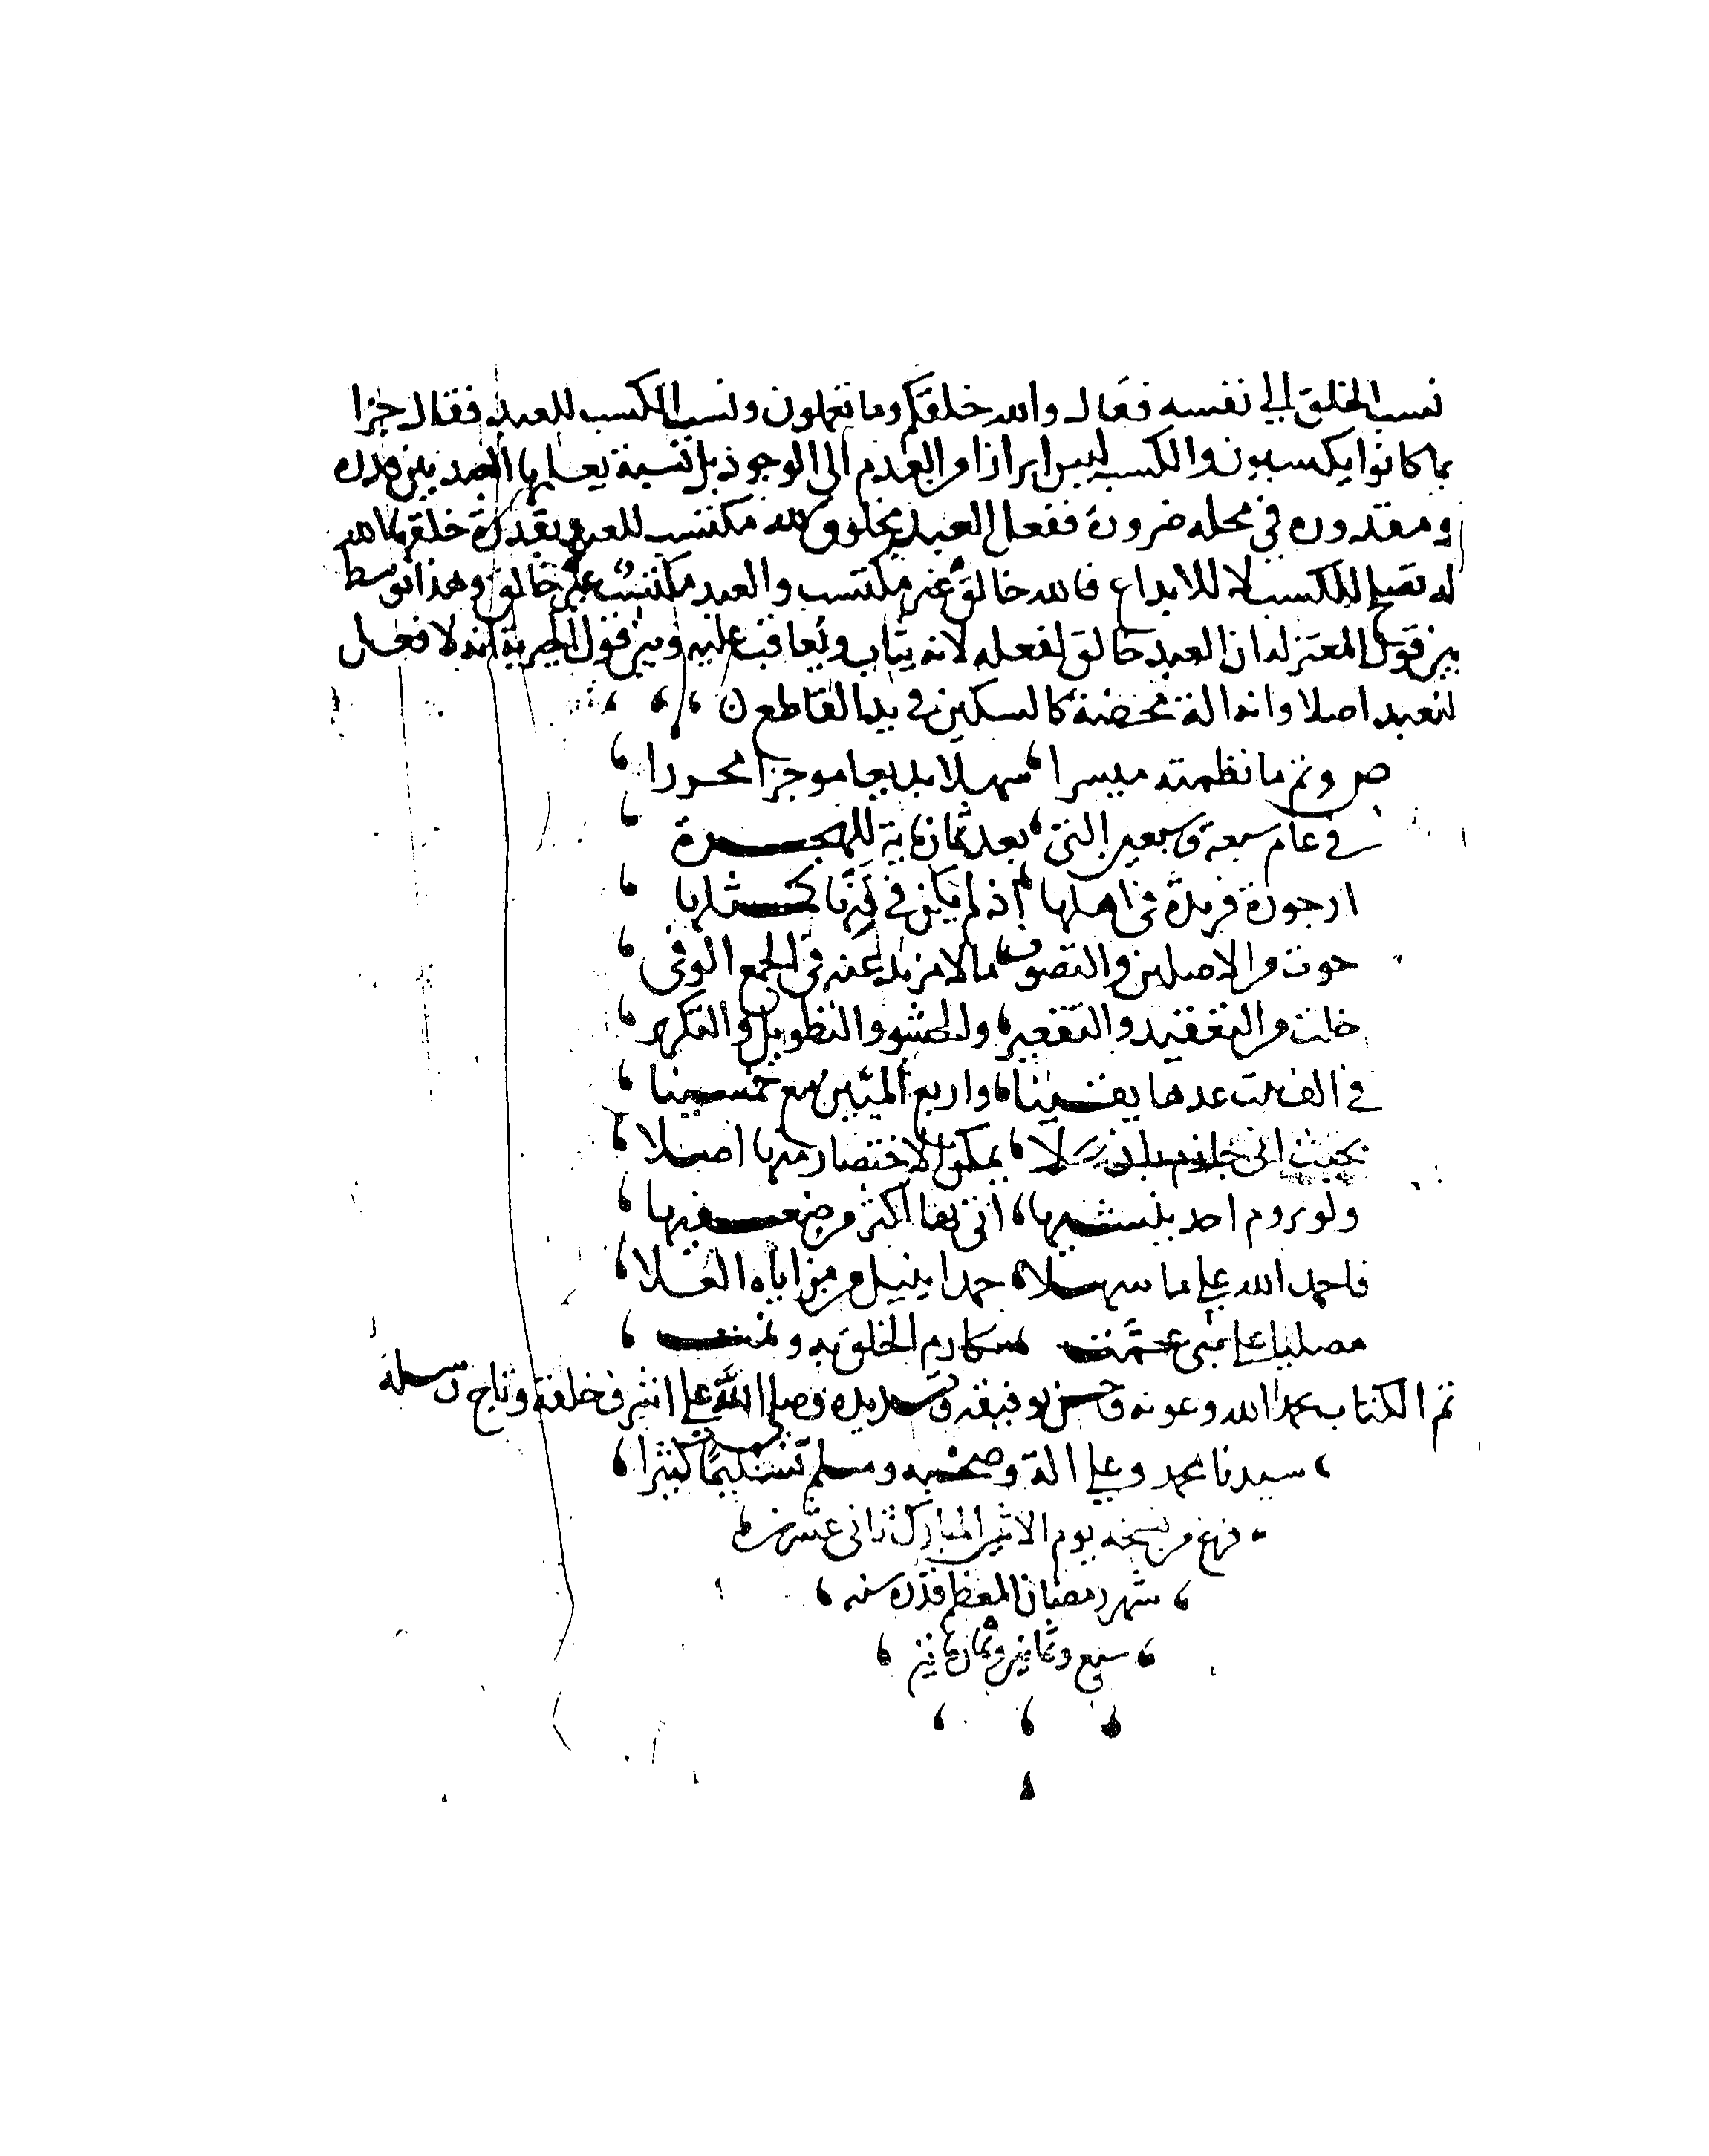 نسب الخلق الى نفسه فقال والله خلقكم وما تعملون ونسب الكسب للعبد فقال جزا
بما كانوا يكسبون والكسب ليس ابرازا من العدم الى الوجود بل نسبة يعلمها العبد بين قدرته
ومقدوره في محله ضرورة ففعل العبد مخلوق لله مكتسب للعبد بقدرة خلقها الله
له تصلح للكسب لا للابداع فالله خالق غير مكتسب والعبد مكتسب غير خالق وهذا توسط
بين قول المعتزلة ان العبد خالق لفعله لانه يثاب ويعاقب عليه وبين قول الجبرية انه لا فعل
للعبد اصلا وانه الة محضة كالسكين في يد القاطع ن
ص وتم ما نظمته ميسرا سهلا بديعا موجزا محررا
في عام سبعة وسبعين التي بعد ثمانماية للهجرة
ارجوزة فريدة في اهلها اذ لم يكن في فنها كمثلها
حوت من الاصلين والتصوف ما لا مزيد عنه في الجمع الوفي
خلت من التعقيد والتقعير والحشو والتطويل والتكرير
في الف عدها يقينا واربع الميين مع خمسينا
بحيث اني لا يمكن الاختصار منها اصلا
ولو يروم احد ينشيها اتى بها اكثر من ضعفيها
فاحمد الله على ما سهلا حمدا ينيل من مزاياه العلا
مصليا على نبي عمت مكارم الخلق به وتمت
تم الكتاب بحمد الله وعونه وحسن توفيقه وتسديده وصلى الله على اشرف خلقه وتاج رسله
سيدنا محمد وعلى الة وصحبه وسلم تسليما كثيرا
فرغ من نسخه يوم الاثنين المبارك ثاني عشرين
شهر رمضان المعظم قدره سنه
سبع وثمانين وثمانماية